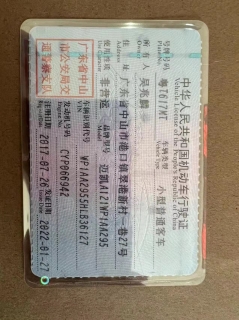 中华人民共和国机动车行驶证
Vehicle License of the People's Republic of China
号牌号码
Plate No.
粤Z6177MT
车辆类型
Vehicle Type
小型普通客车
所有人
Owner
吴兆麟
住址
Address
广东省中山市港口镇翠港新村一巷27号
使用性质
Use Character
非营运
品牌型号
Model
广东省中山
市公安局交
通警察支队
车辆识别代号
VIN
发动机号码
Engine No.
CYP066942
注册日期
Register Date
2017-07-26
发证日期
Issue Date
2022-01-27